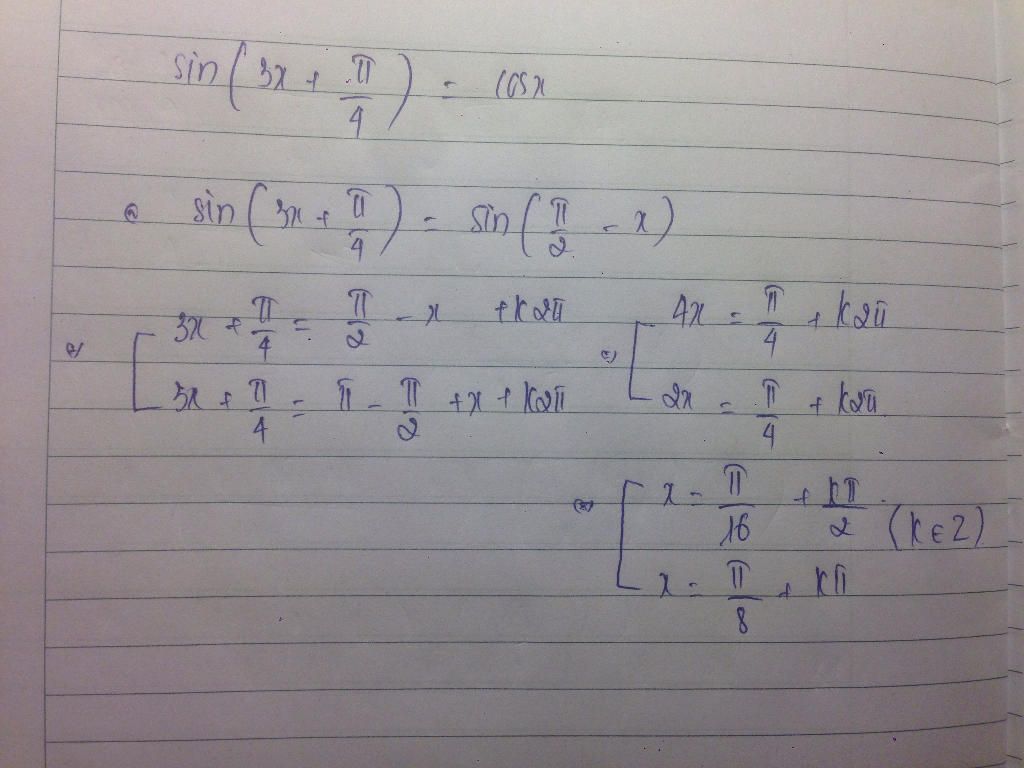 sin(3x + π/4) = cosx
⇔ sin(3x + π/4) = sin(π/2 - x)
⇔ [ 3x + π/4 = π/2 - x + k2π
3x + π/4 = π - π/2 + x + k2π
⇔ [ 4x = π/4 + k2π
2x = π/4 + k2π
⇔ [ x = π/16 + kπ/2
x = π/8 + kπ
(k ∈ Z)